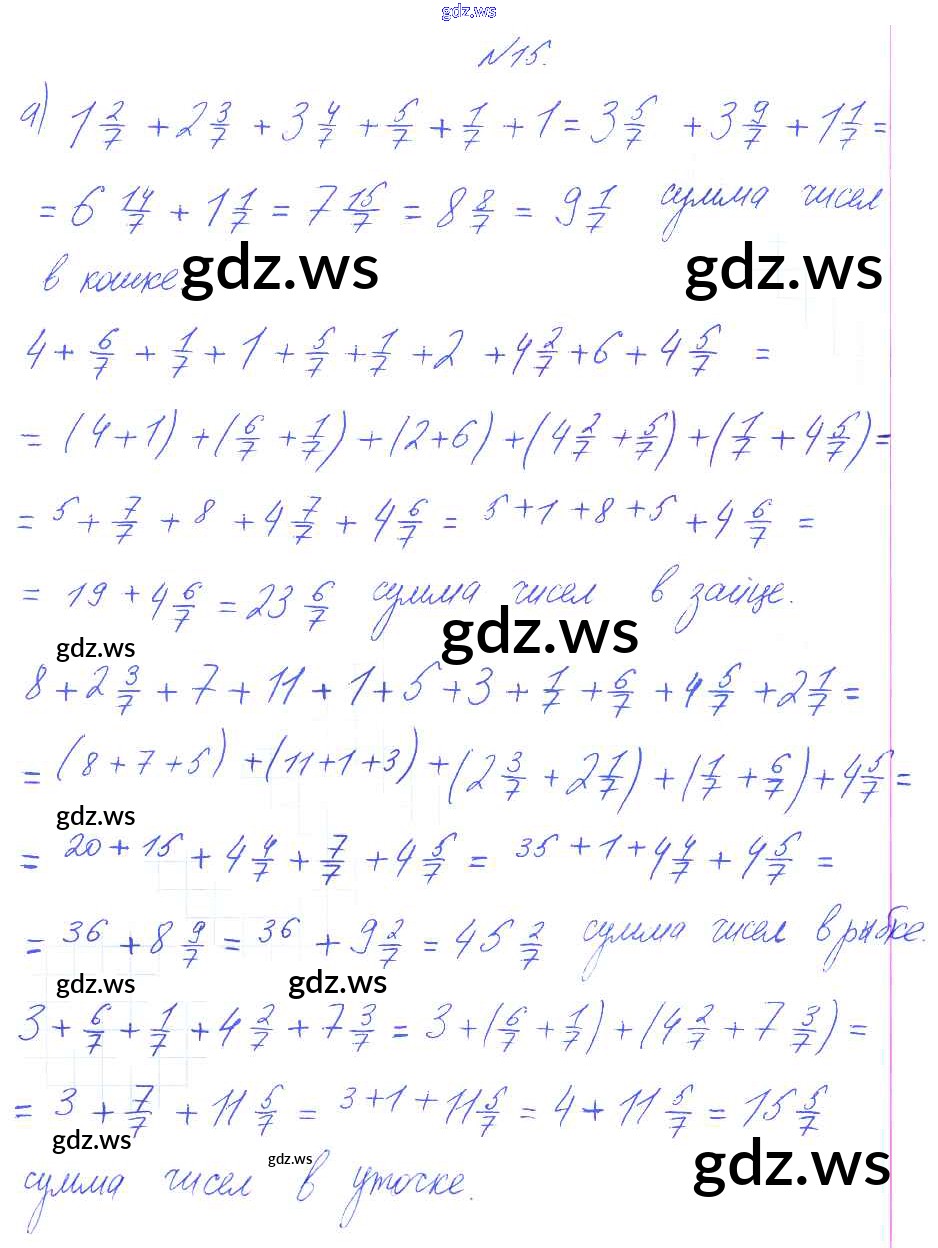 gdz.ws
N15.
а) 1 2/7 + 2 3/7 + 3 4/7 + 5/7 + 1/7 + 1 = 3 5/7 + 3 9/7 + 1 1/7 =
= 6 14/7 + 1 1/7 = 7 15/7 = 8 8/7 = 9 1/7 сумма чисел
в кошке
gdz.ws gdz.ws
4 + 6/7 + 1/7 + 1 + 5/7 + 1/7 + 2 + 4 2/7 + 6 + 4 5/7 =
= (4 + 1) + (6/7 + 1/7) + (2 + 6) + (4 2/7 + 5/7) + (1/7 + 4 5/7) =
= 5 + 7/7 + 8 + 4 7/7 + 4 6/7 = 5 + 1 + 8 + 5 + 4 6/7 =
= 19 + 4 6/7 = 23 6/7 сумма чисел в зайце.
gdz.ws gdz.ws
8 + 2 3/7 + 7 + 11 + 1 + 5 + 3 + 1/7 + 6/7 + 4 5/7 + 2 1/7 =
= (8 + 7 + 5) + (11 + 1 + 3) + (2 3/7 + 2 1/7) + (1/7 + 6/7) + 4 5/7 =
gdz.ws
= 20 + 15 + 4 4/7 + 7/7 + 4 5/7 = 35 + 1 + 4 4/7 + 4 5/7 =
= 36 + 8 9/7 = 36 + 9 2/7 = 45 2/7 сумма чисел в рыбке.
gdz.ws gdz.ws
3 + 6/7 + 1/7 + 4 2/7 + 7 3/7 = 3 + (6/7 + 1/7) + (4 2/7 + 7 3/7) =
= 3 + 7/7 + 11 5/7 = 3 + 1 + 11 5/7 = 4 + 11 5/7 = 15 5/7
gdz.ws gdz.ws gdz.ws
сумма чисел в уточке.